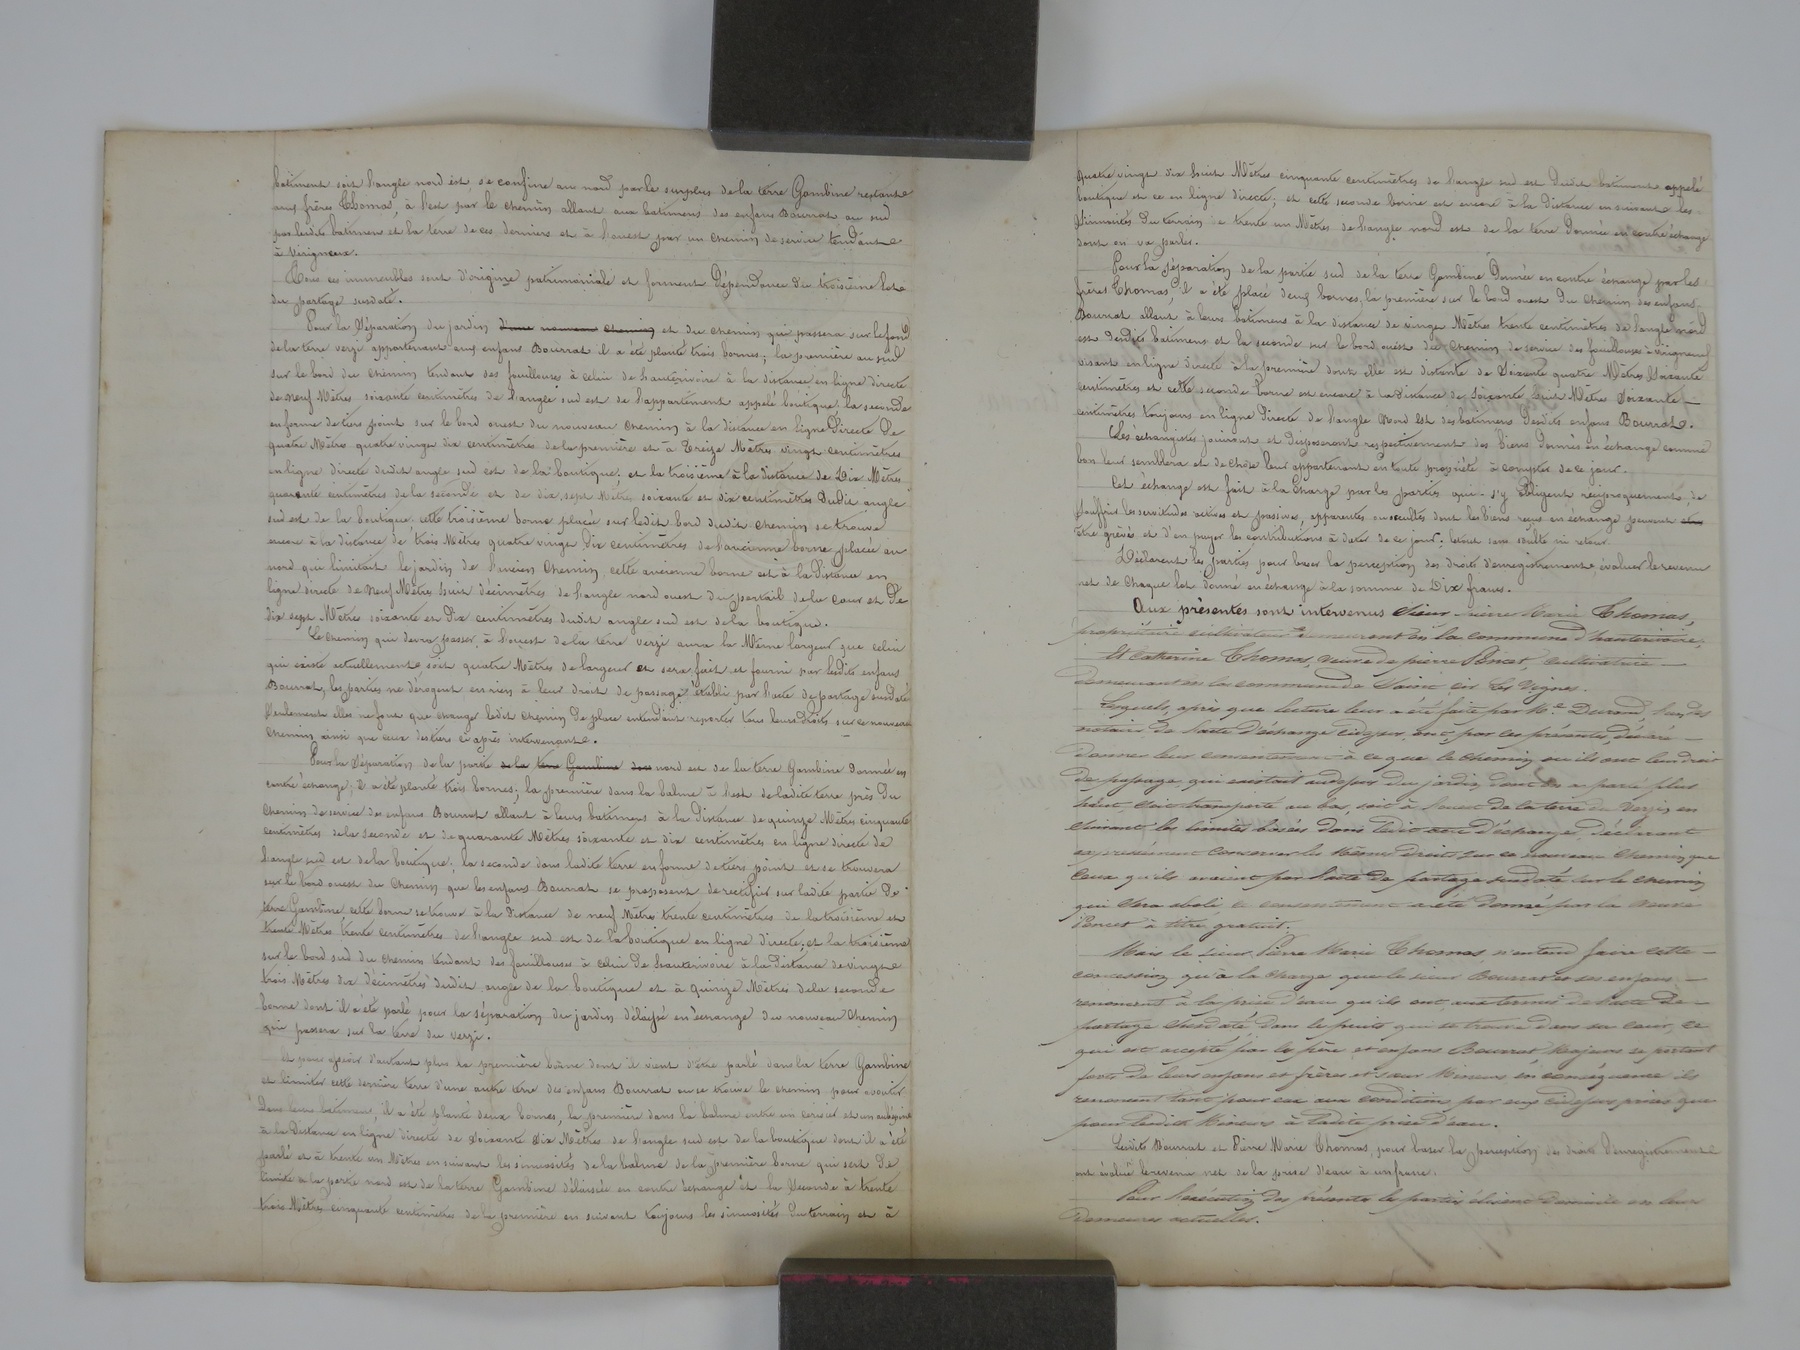 batiment soit l'angle nord est, se confine au nord par le surplus de la terre Gambine restante
aux frères Thomas, à l'est par le chemin allant aux batimens des enfans Bourrat au sud
par lesdits batimens et la terre de ces derniers et à l'ouest par un chemin de service tendante
à Virigneux.
Tous ces immeubles sont d'origine patrimoniale et forment Dépendance du troisième lot
du partage susdaté.
Pour la Séparation du jardin d'une nouveau chemin et du chemin qui passera sur le fond
de la terre verzi appartenant aux enfans Bourrat il a été planté trois bornes; la première au sud
sur le bord du chemin tendant des fouilloux à celui de hauterivoire à la distance en ligne directe
de neuf Mètres soixante centimètres de l'angle sud est de l'appartement appelé boutique; la seconde
en forme de tiers point sur le bord ouest du nouveau chemin à la distance en ligne Directe De
quatre Mètres quatre vingt dix centimètres de la première et à Treize Mètres vingt centimètres
en ligne directe dudit angle sud est de la boutique; et la troisième à la distance de Dix Mètres
quarante centimètres de la seconde et de dix sept Mètres soixante et dix centimètres Dudit angle
sud est de la boutique, cette troisième borne placée sur ledit bord dudit chemin se trouve
encore à la distance de trois Mètres quatre vingt Dix centimètres de l'ancienne borne placée au
nord que limitait le jardin de l'ancien chemin, cette ancienne borne est à la distance en
ligne directe de neuf Mètres huit décimètres de l'angle nord ouest du portail de la cour et De
dix sept Mètres soixante et Dix centimètres dudit angle sud est de la boutique.
Le chemin qui devra passer à l'ouest de la terre verzi aura la Même largeur que celui
qui existe actuellement soit quatre Mètres de largeur et sera fait et fourni par lesdits enfans
Bourrat, les parties ne dérogent en rien à leur droit de passage établi par l'acte de partage susdaté
Seulement elles ne font que changer ledit chemin De place entendant reporter tous leurs droits sur ce nouveau
chemin ainsi que ceux des tiers ci après intervenants.
Pour la Séparation de la partie de la terre Gambine nord est de la terre Gambine donnée en
contre échange, il a été planté trois bornes; la première dans la balme à l'est de ladite terre près du
chemin de service des enfans Bourrat allant à leurs batimens à la Distance de quinze Mètres cinquante
centimètres de la seconde et de quarante Mètres soixante et dix centimètres en ligne directe de
l'angle sud est de la boutique; la seconde dans ladite terre en forme de tiers point et se trouvera
sur le bord ouest du chemin que les enfans Bourrat se proposent de rectifier sur ladite partie De
terre Gambine cette borne se trouve à la Distance de neuf Mètres trente centimètres de la troisième et
trente Mètres trente centimètres de l'angle sud est de la boutique en ligne directe, et la troisième
sur le bord sud du chemin tendant des fouilloux à celui De hauterivoire à la distance de vingt
trois Mètres dix décimètres dudit angle de la boutique et à quinze Mètres de la seconde
borne dont il a été parlé pour la séparation du jardin délaissé en échange du nouveau chemin
qui passera sur la terre du verzi.
Et pour asseoir d'autant plus la première borne dont il vient d'être parlé dans la terre Gambine
et limiter cette dernière terre d'une autre terre des enfans Bourrat où se trouve le chemin pour aboutir
Dans leurs batimens, il a été planté deux bornes, la première dans la balme entre un cerisier et un aubépine
à la Distance en ligne directe de Soixante Dix Mètres de l'angle sud est de la boutique dont il a été
parlé et à trente un Mètres en suivant les sinuosités de la balme de la première borne qui sert De
limite à la partie nord est de la terre Gambine délaissée en contre échange et la Seconde à trente
trois Mètres cinquante centimètres de la première en suivant toujours les sinuosités Du terrain et à
quatre vingt dix huit Mètres cinquante centimètres de l'angle sud est Dudit batiment appelé
boutique et ce en ligne directe; et cette seconde borne est encore à la distance en suivant les
Sinuosités Du terrain de trente un Mètres de l'angle nord est de la terre Donnée en contre échange
dont on va parler.
Pour la Séparation de la partie sud de la terre Gambine Donnée en contre échange par les
frères Thomas, il a été placé deux bornes, la première sur le bord ouest Du chemin des enfans
Bourrat allant à leurs batimens à la distance de vingt Mètres trente centimètres de l'angle nord
est Desdits batimens et la seconde sur le bord ouest du chemin de service des fouilloux à virigneux
visant en ligne directe à la première dont elle est distante de Soixante quatre Mètres Soixante
centimètres et cette seconde borne est encore à la Distance de soixante huit Mètres Soixante
centimètres toujours en ligne Directe de l'angle Nord Est des batimens Desdits enfans Bourrat.
Les échangistes jouiront et Disposeront respectivement des biens donnés en échange comme
bon leur semblera et de chose leur appartenant en toute propriété à compter de ce jour.
Cet échange est fait à la Charge par les parties qui s'y obligent réciproquement, de
Souffrir les servitudes actives et passives, apparentes ou occultes dont les biens reçus en échange peuvent
être grévés et d'en payer les contributions à dater de ce jour; letout sans soulte ni retour.
Déclarent les parties pour baser la perception des droits d'enregistrement, évaluer le revenu
net de Chaque lot donné en échange à la somme de Dix francs.
Aux présentes sont intervenus Sieur Pierre Marie Thomas,
propriétaire cultivateur demeurant en la commune d'hauterivoire,
Et Catherine Thomas, veuve de pierre Poncet, cultivatrice
demeurant en la commune de Saint Cir Les Vignes.
Lesquels, après que lecture leur a été faite par Me Durand, l'un des
notaires de l'acte d'échange ci dessus, ont, par ces présentes, déclaré
donner leur consentement à ce que le chemin où ils ont leur droit
de passage, qui existait audessus du jardin dont on a parlé plus
haut, soit transporté au bas, soit à l'ouest de la terre du Verzis en
suivant les limites basées dans ledit acte d'échange, déclarant
expressément conserver les Mêmes Droits sur ce nouveau Chemin que
ceux qu'ils avaient par l'acte de partage susdaté sur le chemin
qui sera aboli, ce consentement a été donné par la veuve
Poncet à titre gratuit.
Mais le sieur Pierre Marie Thomas n'entend faire cette
concession qu'à la Charge que le sieur Bourrat et ses enfans
renoncent à la prise d'eau qu'ils ont, aux termes de l'acte De
partage Susdaté Dans le puits qui se trouve dans sa cour, ce
qui est accepté par le père et enfans Bourrat Majeurs se portant
forts de leurs enfans et frères et sœur Mineurs en conséquence ils
renoncent tant pour eux aux conditions par eux ci dessus prises que
pour lesdits Mineurs à ladite prise d'eau.
Lesdits Bourrat et Pierre Marie Thomas, pour baser la perception des droits D'enregistrement
ont évalué le revenu net de la prise d'eau à un franc.
Pour l'exécution des présentes les parties élisent domicile en leurs
demeures actuelles.